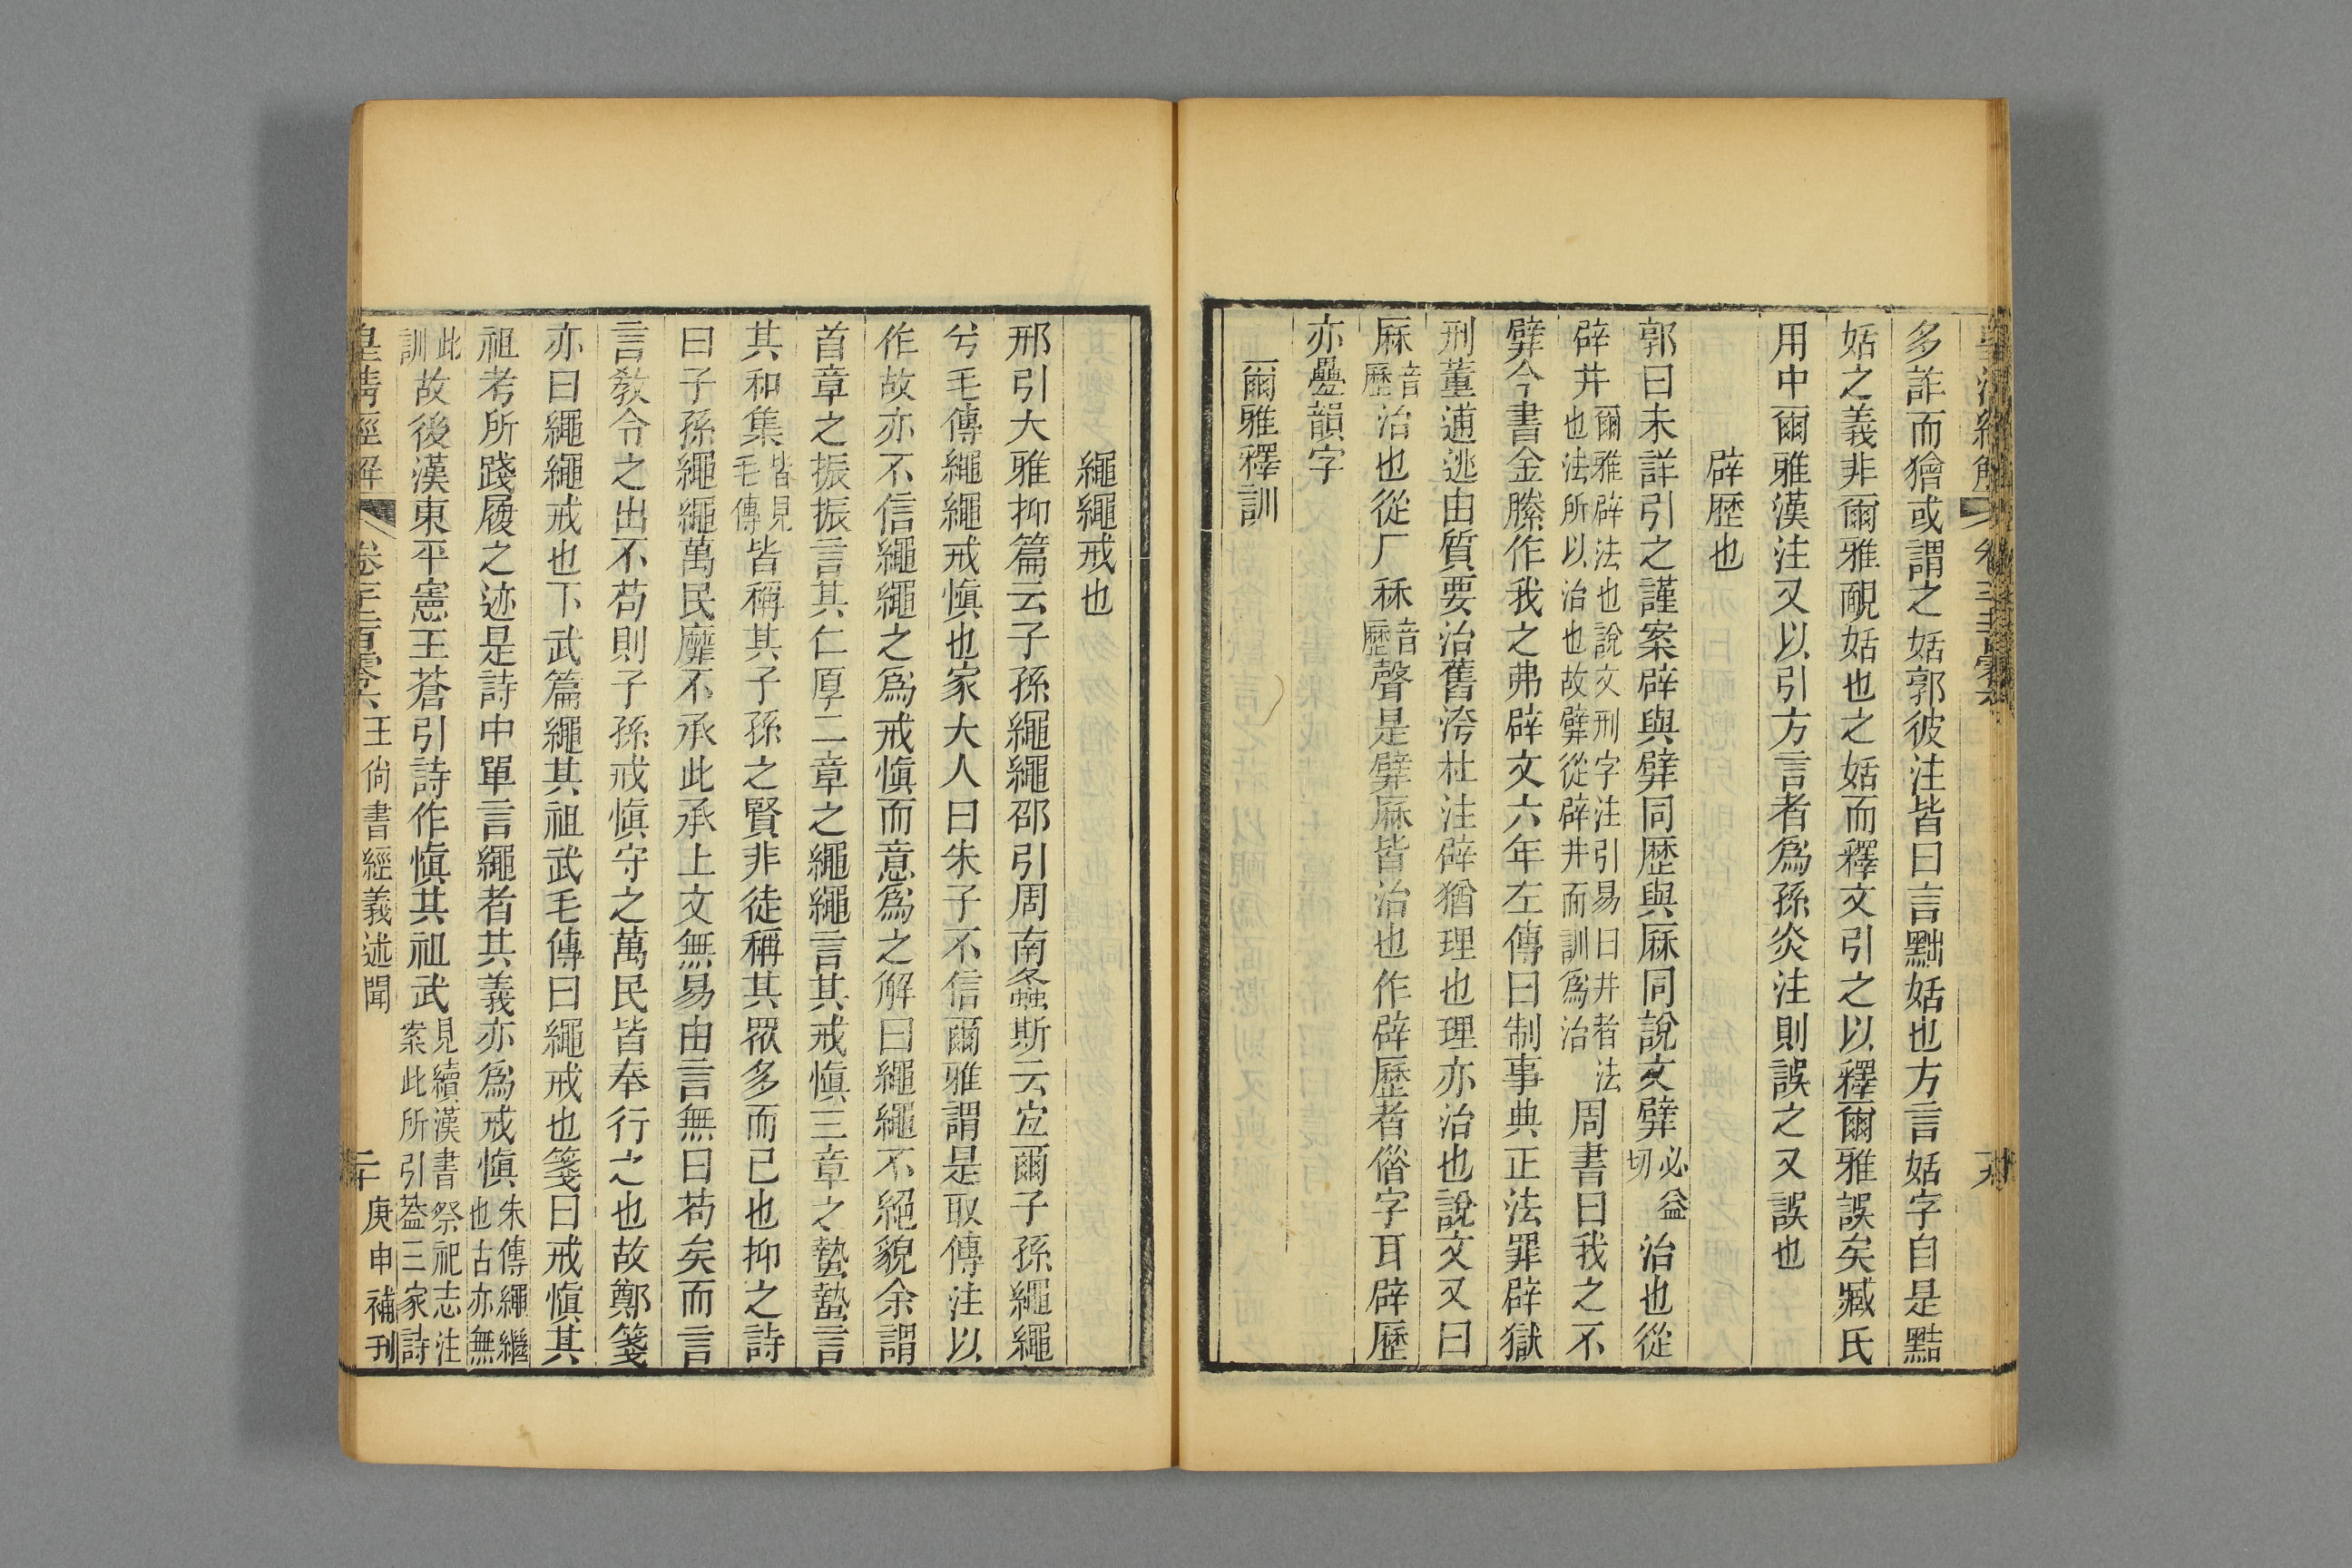 多詐而獪或謂之姡郭彼注皆曰言黜姡也方言姡字自是黠
姡之義非爾雅靦姡也之姡而釋文引之以釋爾雅誤矣臧氏
用中爾雅漢注又以引方言者爲孫炎注則誤之又誤也
辟歷也
郭曰未詳引之謹案辟與擘同歷與厤同說文擘必益切治也從
辟井爾雅辟法也說文刑字注引易曰井者法也法所以治也故擘從辟井而訓爲治周書曰我之不
擘今書金縢作我之弗辟文六年左傳曰制事典正法罪辟獄
刑董逋逃由質要治舊洿杜注辟猶理也理亦治也說文又曰
厤音歷治也從厂秝音歷聲是擘厤皆治也作辟歷者俗字耳辟歷
亦疊韻字
爾雅釋訓
繩繩戒也
邢引大雅抑篇云子孫繩繩邵引周南螽斯云宜爾子孫繩繩
兮毛傳繩繩戒愼也家大人曰朱子不信爾雅謂是取傳注以
作故亦不信繩繩之爲戒愼而意爲之解曰繩繩不絕貌余謂
首章之振振言其仁厚二章之繩繩言其戒愼三章之蟄蟄言
其和集皆見毛傳皆稱其子孫之賢非徒稱其眾多而已也抑之詩
曰子孫繩繩萬民靡不承此承上文無易由言無曰苟矣而言
言敎令之出不苟則子孫戒愼守之萬民皆奉行之也故鄭箋
亦曰繩繩戒也下武篇繩其祖武毛傳曰繩戒也箋曰戒愼其
祖考所踐履之迹是詩中單言繩者其義亦爲戒愼朱傳繩繼也古亦無
此訓故後漢東平憲王蒼引詩作愼其祖武見續漢書祭祀志注案此所引葢三家詩
皇清經解 卷一千二百零六 王尙書經義述聞 二十 庚申補刊